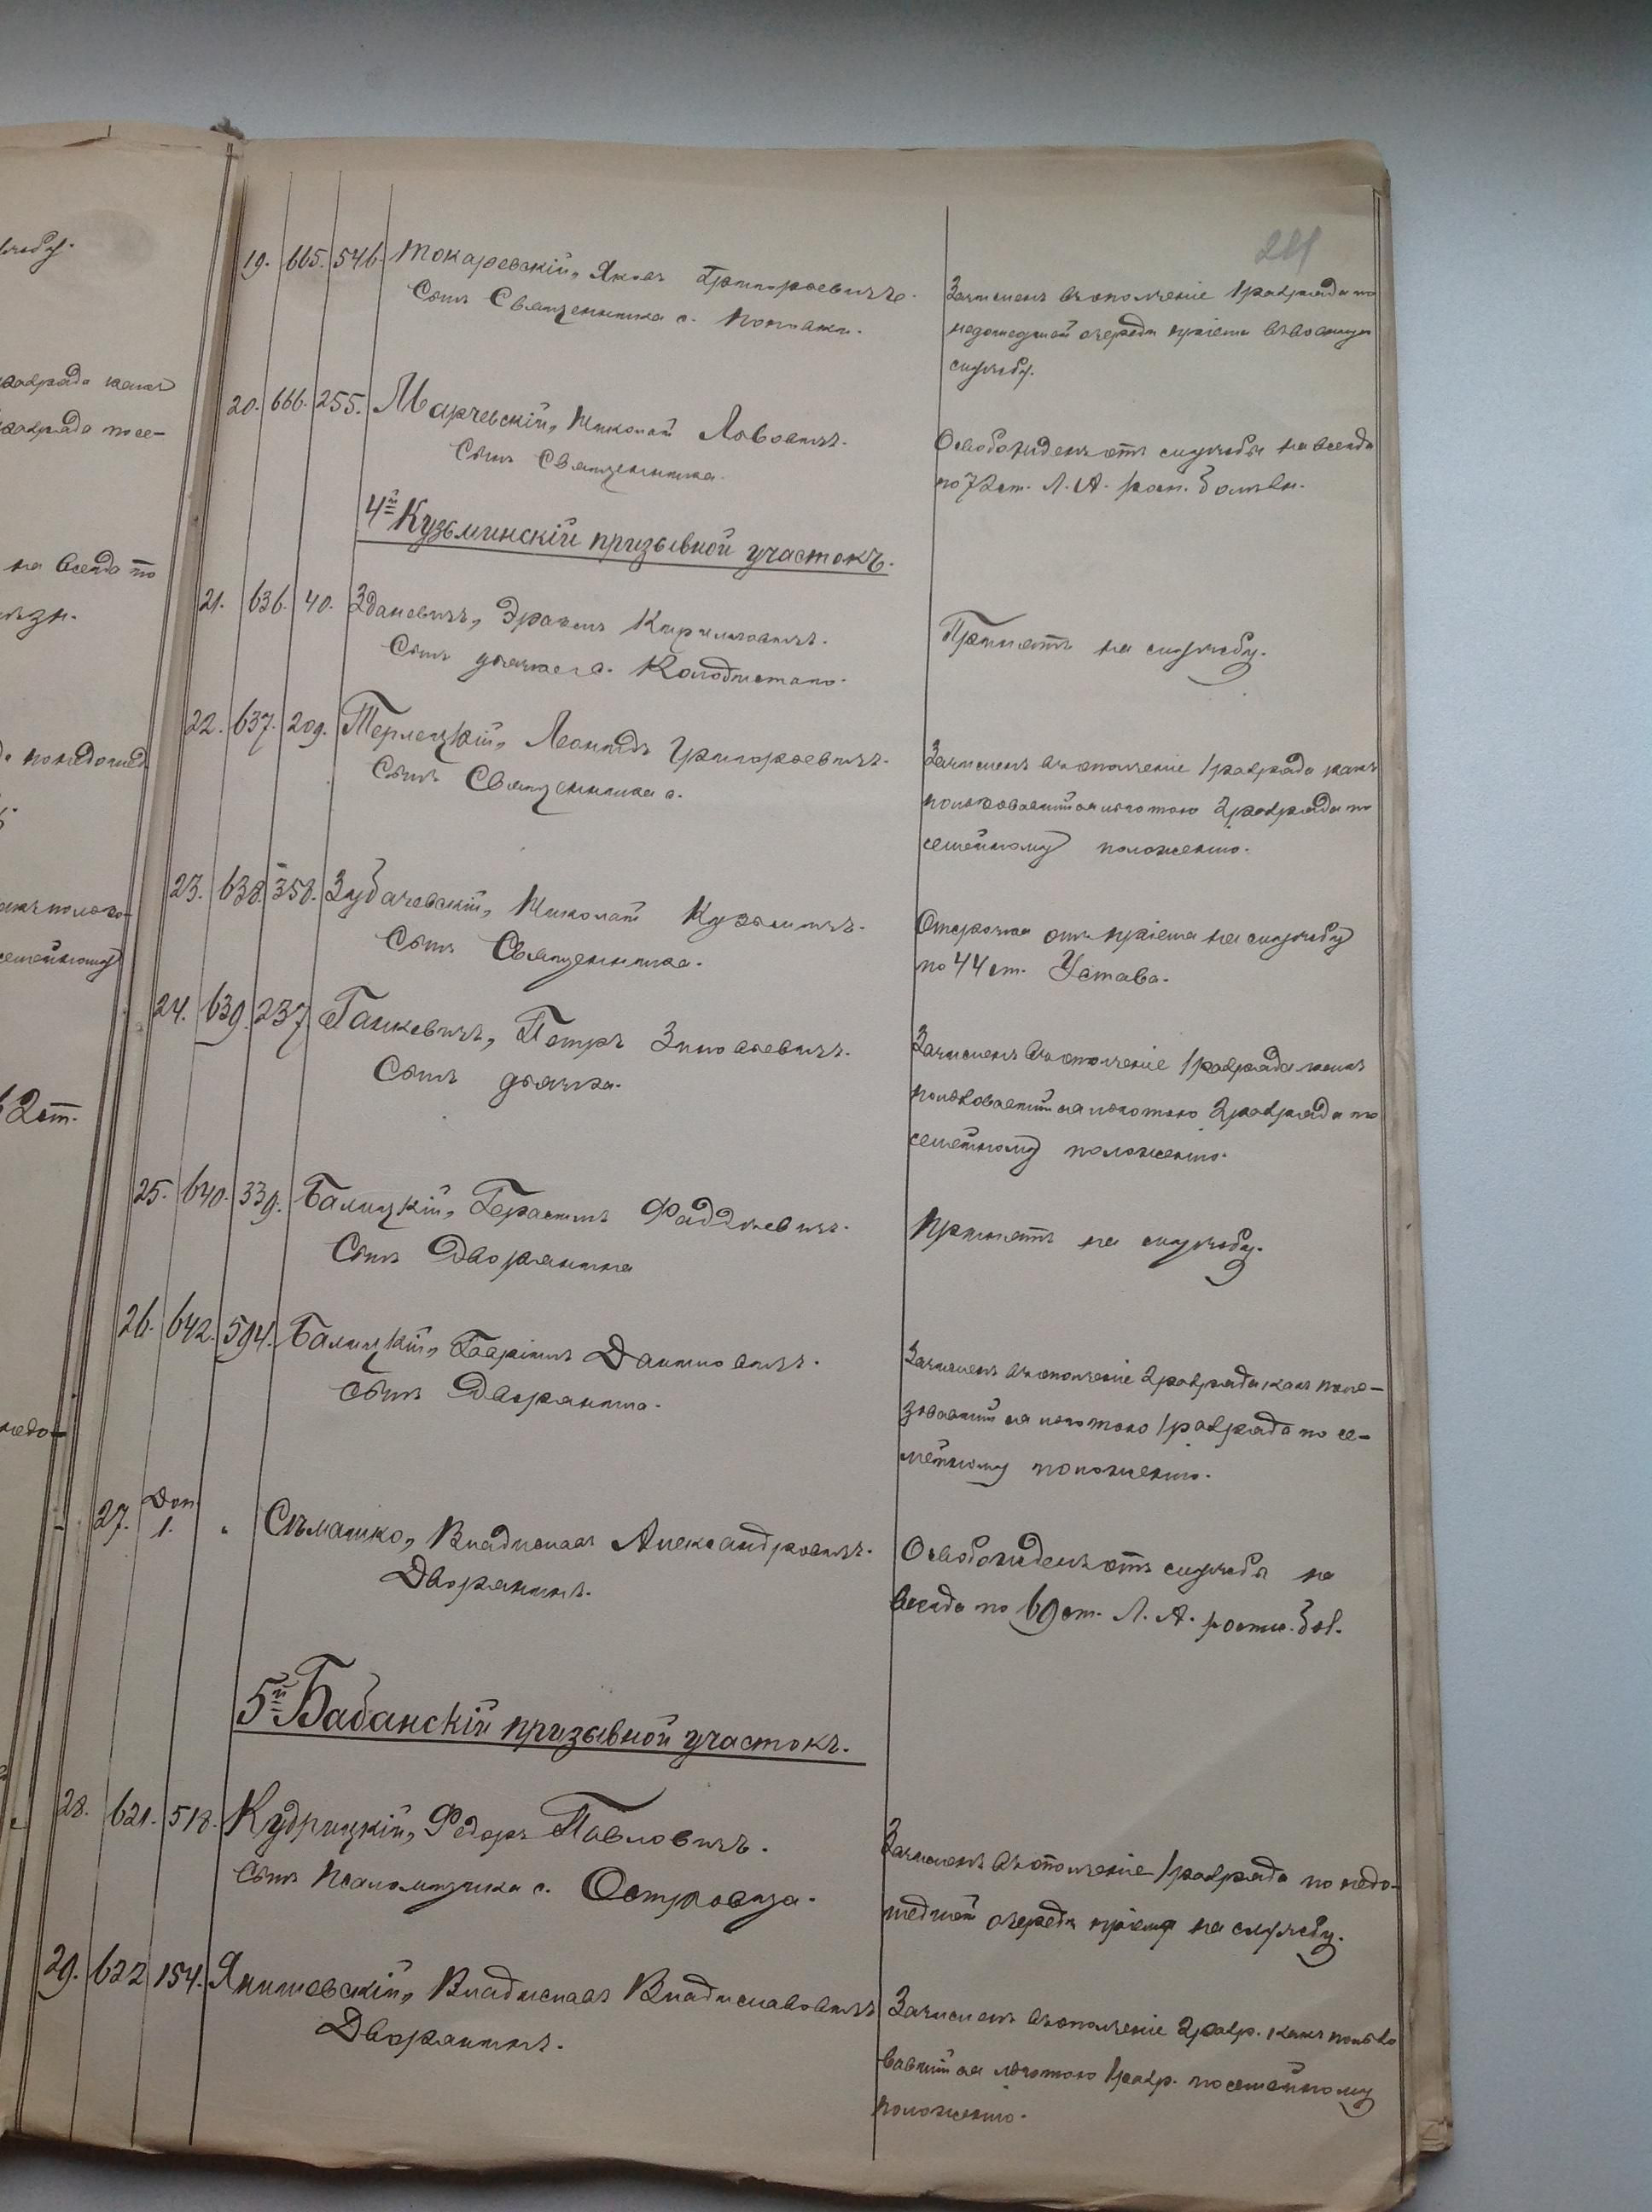 лужбу.
разряда какъ
разряда по се-
на всегда по
лѣзн.
по недошед
семейному
62 ст.
недо-
241
19. 665. 546. Токаревскій, Яковъ Григорьевичъ.
Сынъ Священника с.
Зачисленъ въ ополченіе 1 разряда по
недошедшей очереди пріема въ военную
службу.
20. 666. 255. Марчевскій, Николай Львовичъ.
Сынъ Священника.
Освобожденъ отъ службы на всегда
по 72 ст. Л. А. росп. болѣзн.
4й Кузьминскій призывной участокъ.
21. 636. 40. Здановичъ, Эразмъ Кирилловичъ.
Сынъ дьячка с. Колодистаго.
Принятъ на службу.
22. 637. 209. Терлецкій, Леонидъ Григорьевичъ.
Сынъ Священника с.
Зачисленъ въ ополченіе 1 разряда какъ
пользовавшійся льготою 2 разряда по
семейному положенію.
23. 638. 358. Зубачевскій, Николай Кузьмичъ.
Сынъ Священника.
Отсрочка отъ пріема на службу
по 44 ст. Устава.
24. 639. 237. Ганкевичъ, Петръ Зиновьевичъ.
Сынъ дьячка.
Зачисленъ въ ополченіе 1 разряда какъ
пользовавшійся льготою 2 разряда по
семейному положенію.
25. 640. 339. Балицкій, Герасимъ Фаддѣевичъ.
Сынъ Дворянина
Принятъ на службу.
26. 642. 594. Балицкій, Гавріилъ Даниловичъ.
Сынъ Дворянина.
Зачисленъ въ ополченіе 2 разряда какъ поль-
зовавшійся льготою 1 разряда по се-
мейному положенію.
27. Доп. 1. " Сѣмашко, Владиславъ Александровичъ.
Дворянинъ.
Освобожденъ отъ службы на
всегда по 69 ст. Л. А. роспис. бол.
5й Бабанскій призывной участокъ.
28. 621. 518. Кудрицкій, Федоръ Павловичъ.
Сынъ Псаломщика с. Островца.
Зачисленъ въ ополченіе 1 разряда по недо-
шедшей очереди пріема на службу.
29. 622 154. Янишевскій, Владиславъ Владиславовичъ
Дворянинъ.
Зачисленъ въ ополченіе 2 разр. какъ пользо
вавшійся льготою 1 разр. по семейному
положенію.